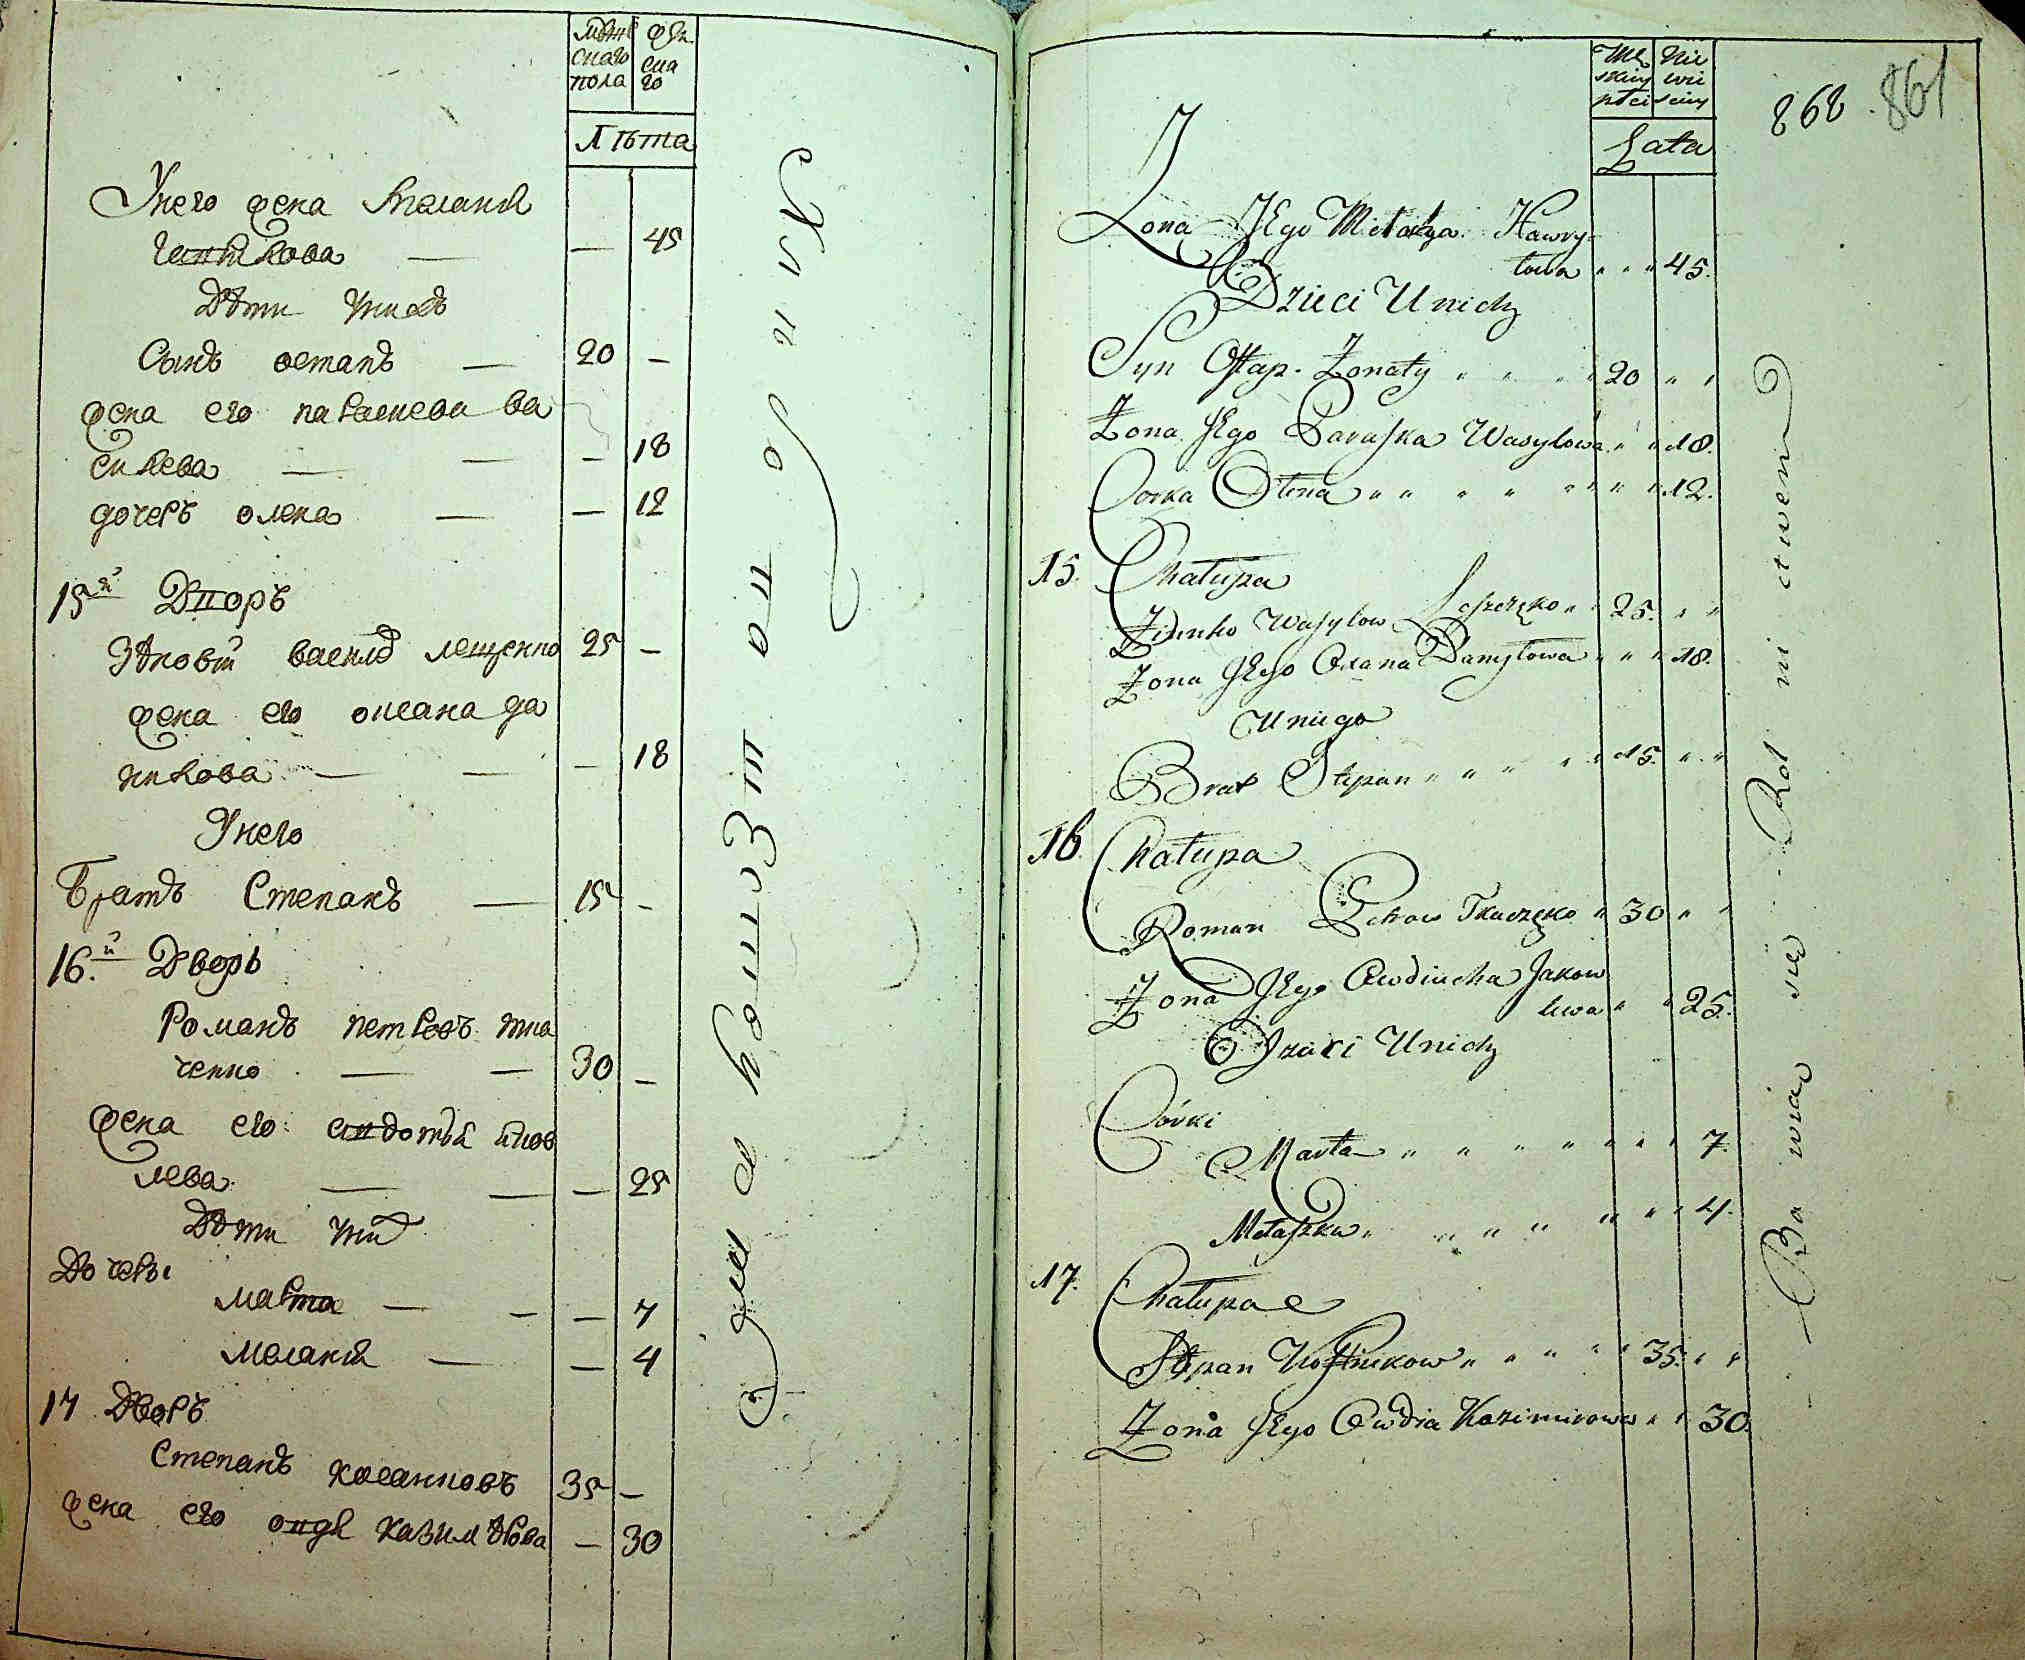 Мужескаго пола
жен скаго
Лѣта
У него жена Меланія
Гаврилова — — 45
Дѣти у нихъ
Сынъ остапъ — 20 —
жена его параскева ва
сильева — — — 18
дочеръ олена — — 12
15й Дворъ
Зѣновій васильв лещенко 25 —
жена его оксана да
нилова — — — 18
У него
Братъ Степанъ — 15 —
16.й Дворъ
Романъ петровъ тка
ченко — — 30 —
жена его явдотья яков
лева — — — 25
Дѣти у них
Дочеры
марта — — — 7
Меланія — — 4
17 Дворъ
Степанъ 35 —
жена его казимѣрова — 30
868. 861
Męskiey płci
Niewieściey
Lata
Zona Jego Mełańja Hawry-
łowa " " " 45.
Dzieci U nich
Syn Ostap. Zonaty " " " 20 " "
Zona Jego Paraska Wasylowa " " 18.
Corka Ołena " " " " " " " 12.
15. Chałupa
Zienko Wasylow Leszczęko " " 25. " "
Zona Jego Oxana Danyłowa " " " 18.
U niego
Brat Stepan " " " " " 15. " "
16 Chałupa
Roman Petrow Tkaczęko " 30 " "
Zona Jego Owdiucha Jakow
lewa " " 25.
Dzieci U nich
Córki
Marta " " " " " " " 7.
Mełaszka " " " " " " " 4.
17. Chałupa
Stepan " " " " " 35. " "
Zona Jego Owdia Kazimirowa " " 30.
Bawia się Rolnictwem